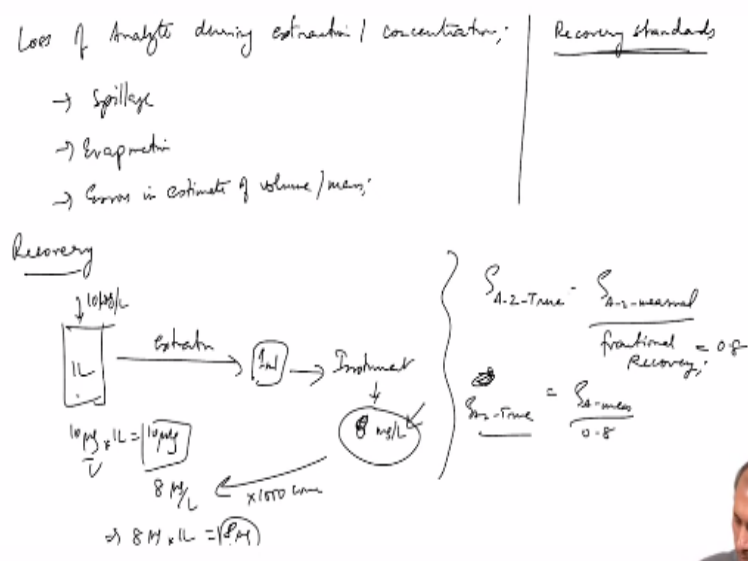 Loss of Analyte during extraction / concentration;
→ Spillage
→ Evaporation
→ Errors in estimate of volume / mass;
Recovery standards
Recovery
10 µg/L
1L
extractn
1ml
Instrument
8 mg/L
10 µg/L × 1L = 10 µg
×1000 conc
8 µg/L
⇒ 8 µg × 1L = 8 µg
ρA-2-True = ρA-2-measured / fractional Recovery; = 0.8
ρA2-True = ρA-meas / 0.8